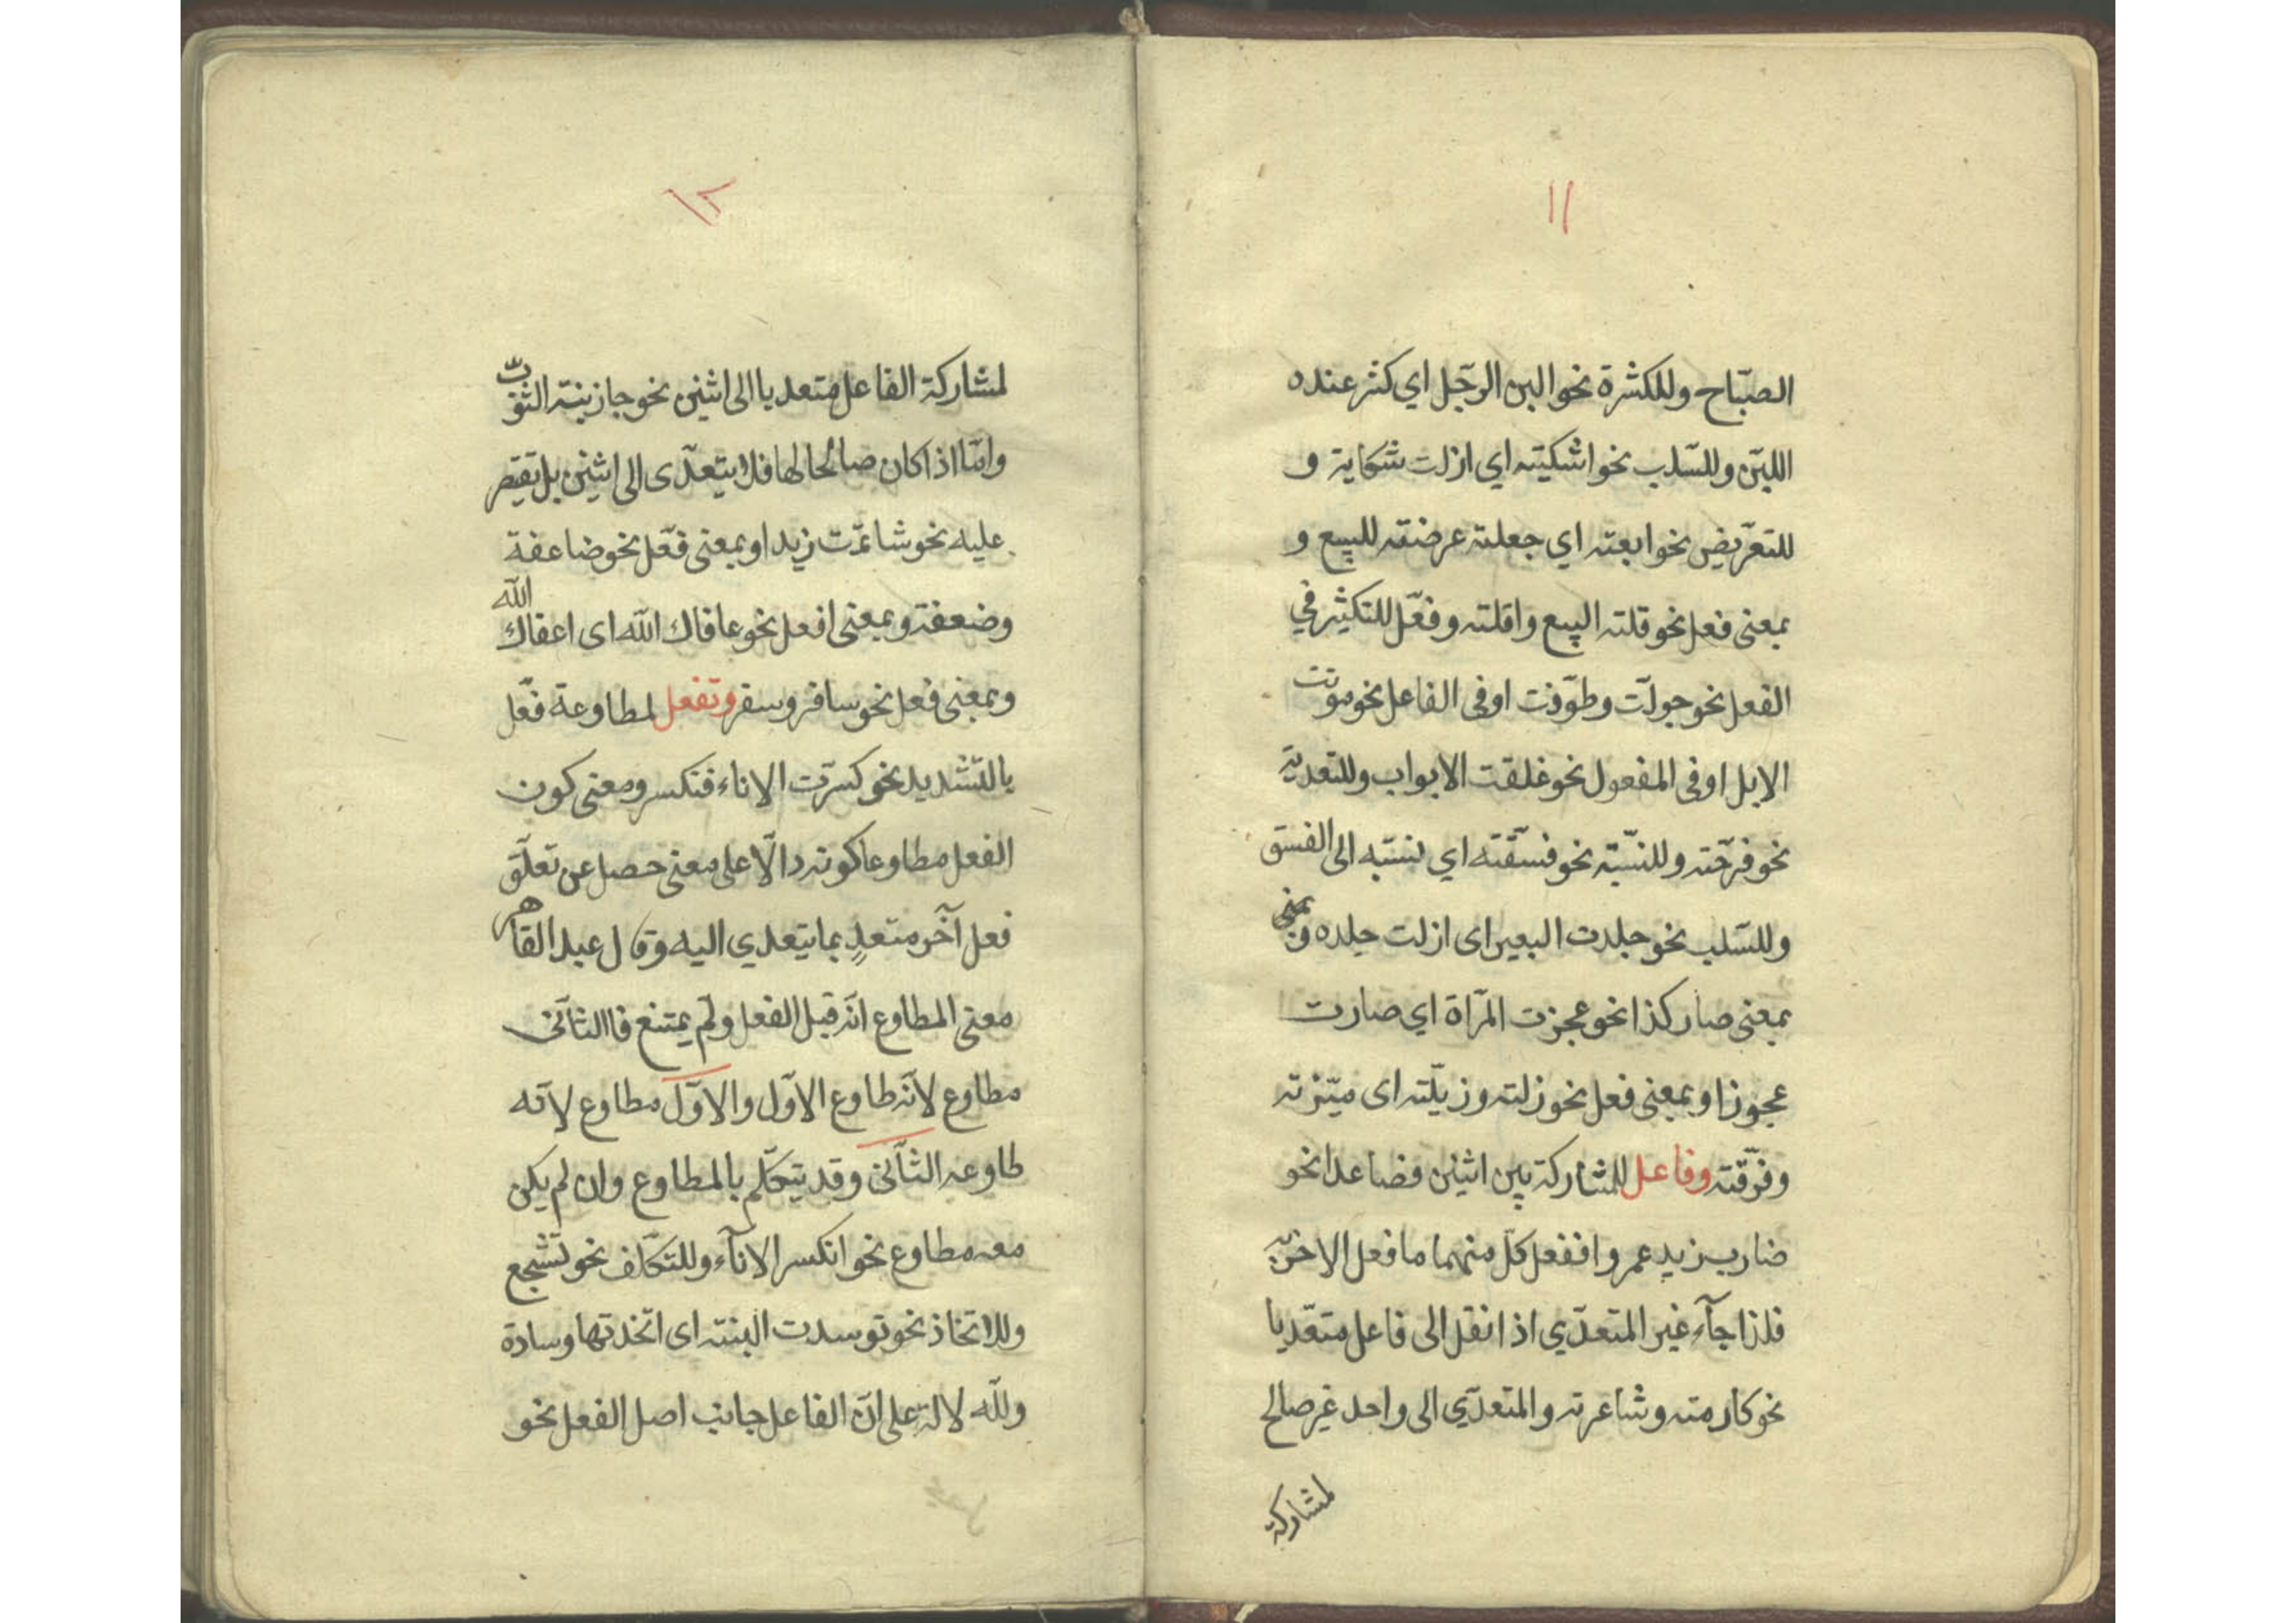 ١١
الصبّاح وللكثرة نحو البن الرجّل اي كثر عنده
اللبّن وللسّلب نحو اشكيته اي ازلت شكاية و
للتعرّيض نحو ابعته اي جعلته عرضته للبيع و
بمعنى فعل نحو قلته البيع واقلته وفعّل للتكثير في
الفعل نحو جولّت وطوّفت او في الفاعل نحو موّتت
الابل او في المفعول نحو غلقت الابواب وللتعدية
نحو فرّحته وللنسّبة نحو فسّقته اي نسبّه الى الفسق
وللسّلب نحو جلدت البعير اى ازلت جلده وبمعنى
بمعنى صار كذا نحو عجزت المرّاة اي صارت
عجوزا وبمعنى فعل نحو زلته وزيّلته اى ميّزته
وفرّقته وفاعل للمشاركة بين اثنين فضاعدا نحو
ضارب زيد عمروا ففعل كلّ منهما ما فعل الاخر به
فلذا جآء غير المتعدّي اذا نقل الى فاعل متعّديا
نحو كارمته وشاعرته والمتعدّي الى واحد غير صالح
لمشاركة
١٢
لمشاركة الفاعل متعديا الى اثنين نحو جازبنته الثوّب
وامّا اذا كان صالحا لها فلا يتعدّى الى اثنين بل تقيصر
عليه نحو شاتمّت زيدا وبمعنى فعّل نحو ضاعفة
وضعفته وبمعنى افعل نحو عافاك الله اى اعفاك الله
وبمعنى فعل نحو سافر وسفر وتفعل لمطاوعة فعّل
بالتّشديد نحو كسرّت الاناء فتكسر ومعنى كون
الفعل مطاوعا كونه دالّا على معنى حصل عن تعلّق
فعل آخر متعدٍ بما يتعدي اليه وقال عبد القاهر
معنى المطاوع انّه قبل الفعل ولّم يمتنع فاالثآنى
مطاوع لآنّه طاوع الاوّل والاوّل مطاوع لآنه
طاوعه الثّآنى وقد يتكلّم بالمطاوع وان لم يكن
معه مطاوع نحو انكسر الانآء وللتكلّف نحو تشّجع
وللاتخاذ نحو توسدت البنته اى اتّخذتها وسادة
وللّه لالة على انّ الفاعل جانب اصل الفعل نحو